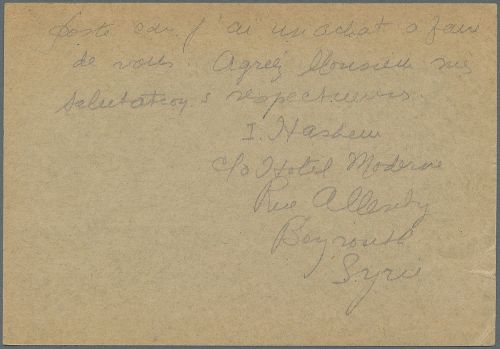 poste car j'ai un achat a faire
de vous. Agréez Monsieur mes
salutations respectueuses.
I. Hashem
c/o Hotel Moderne
Rue Allenby
Beyrouth
Syrie